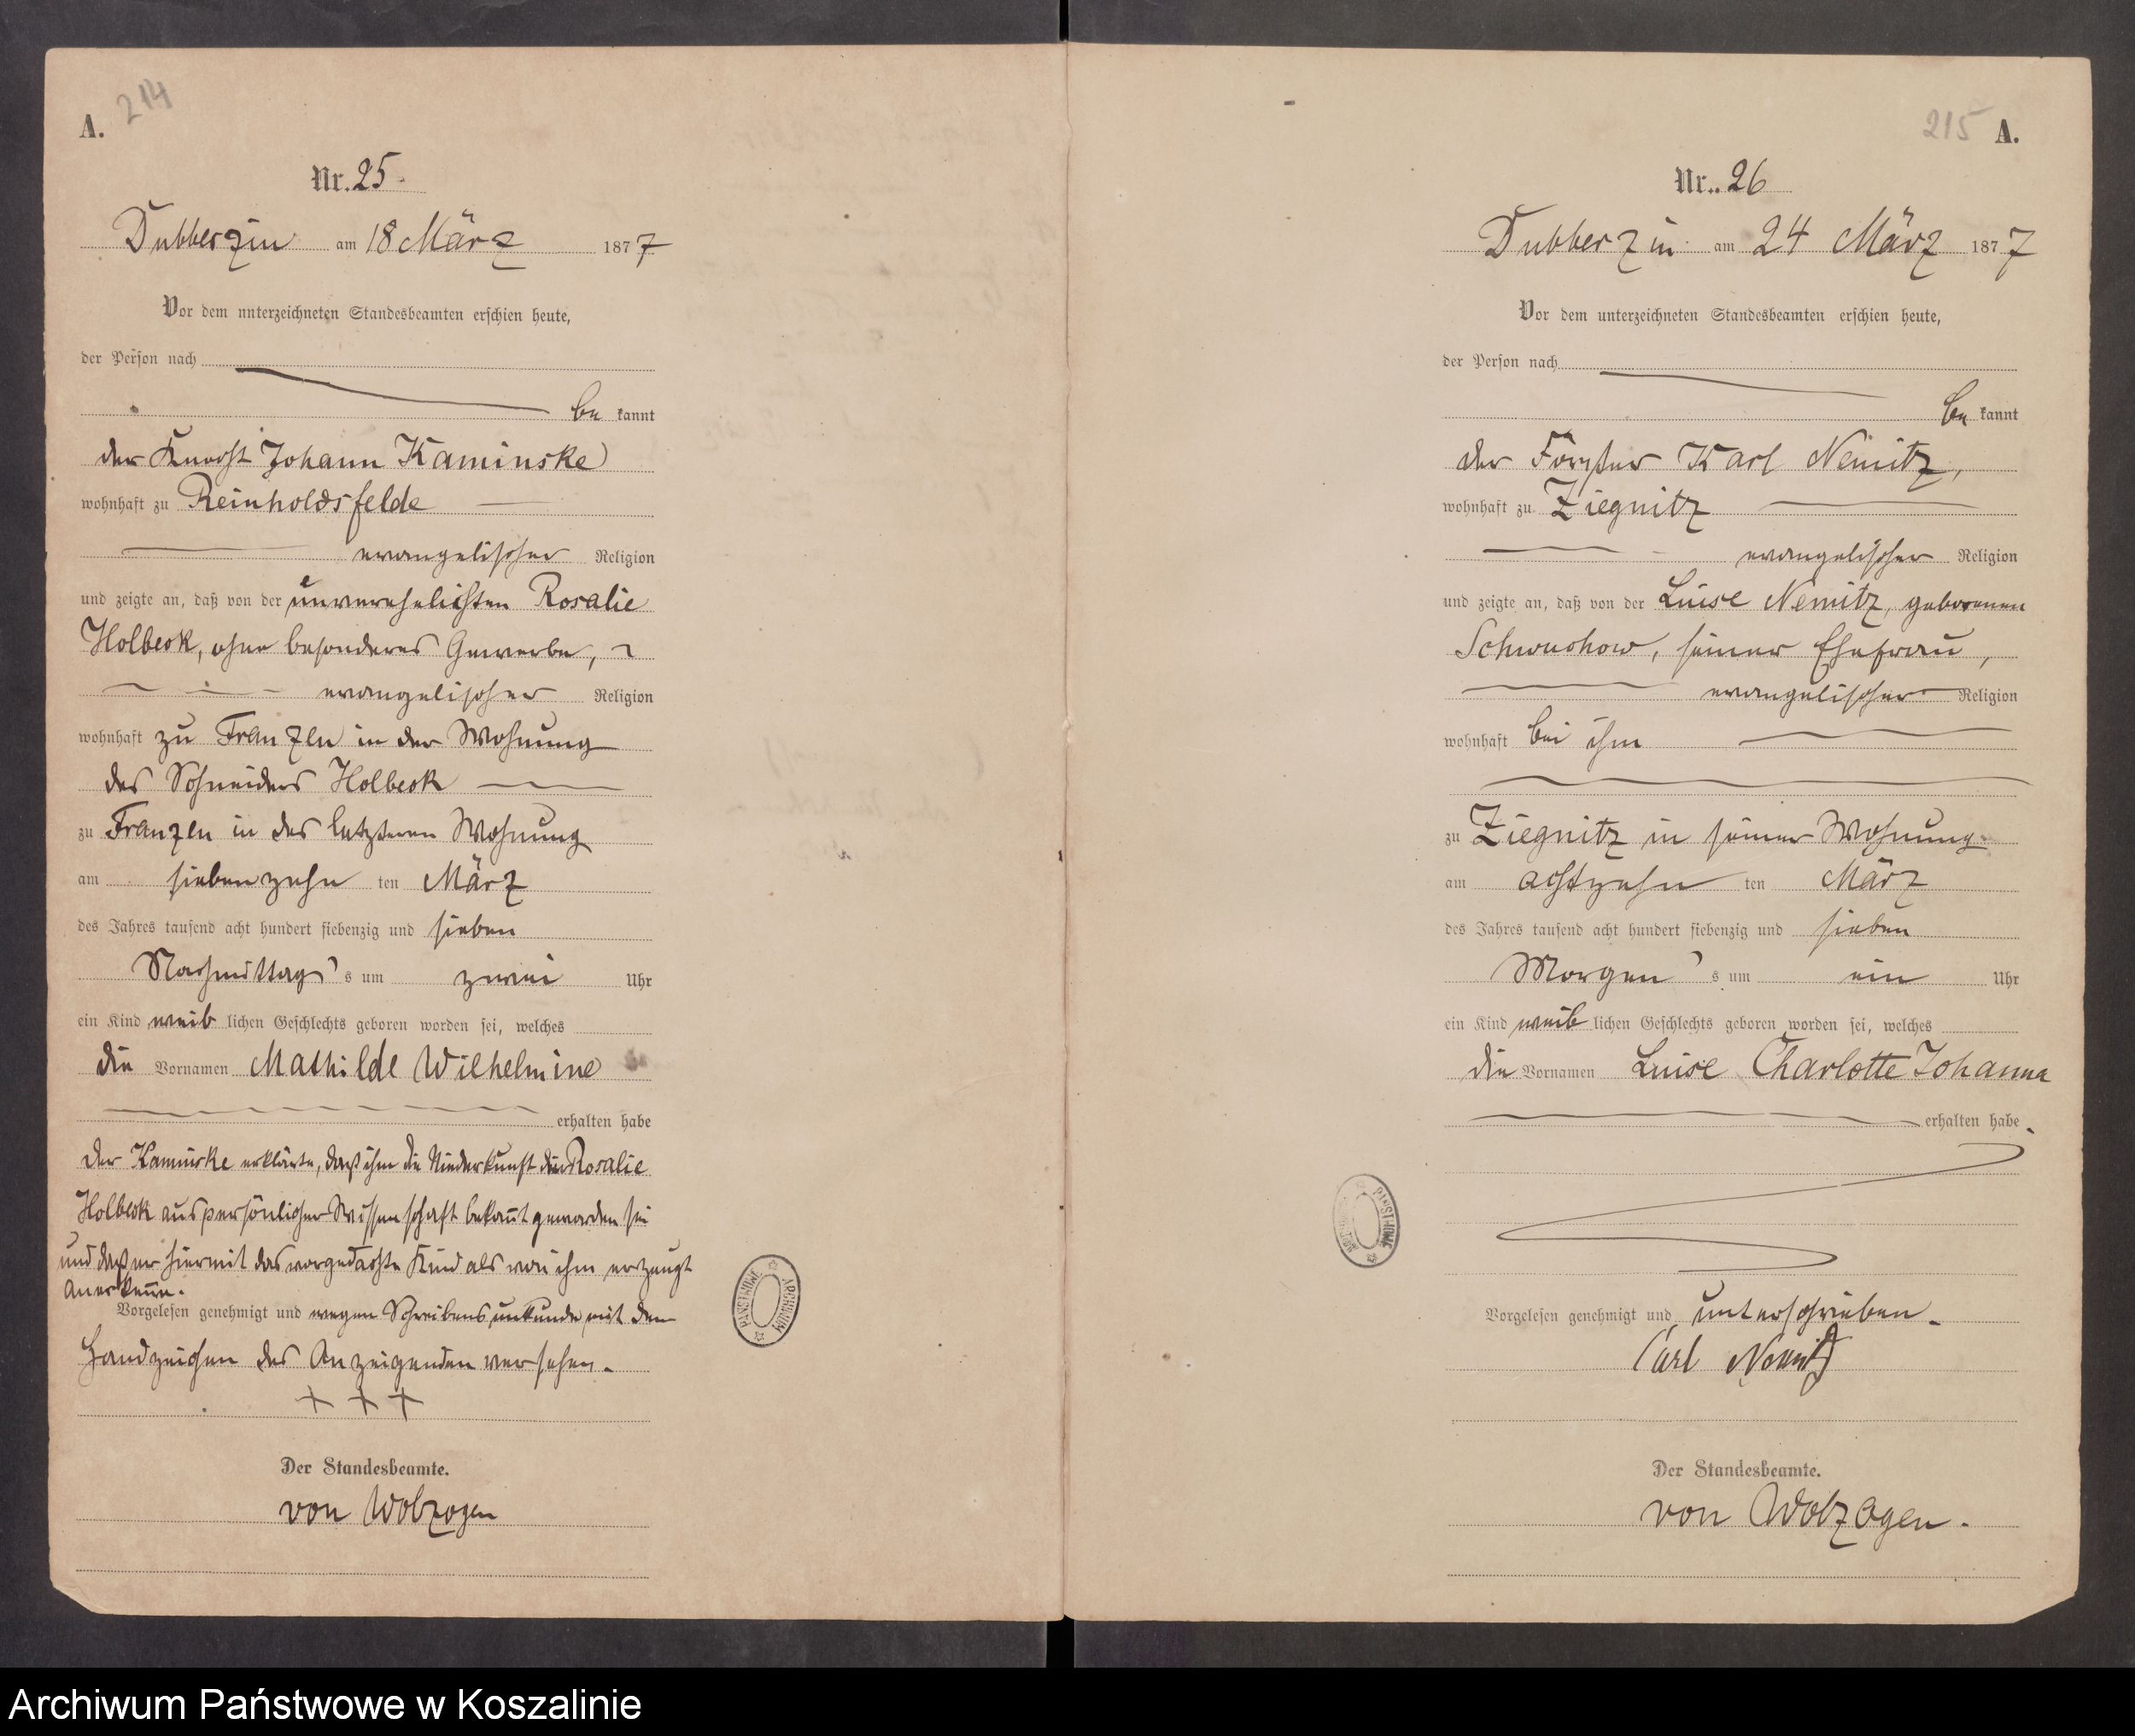 A. 214
Nr. 25.
Dubberzin am 18 März 1877
Vor dem unterzeichneten Standesbeamten erschien heute,
der Person nach
be kannt
der Knecht Johann Kaminske
wohnhaft zu Reinholdsfelde
evangelischer Religion
und zeigte an, daß von der unverehelichten Rosalie
Holbeck, ohne besonderes Gewerbe,
evangelischer Religion
wohnhaft zu Franzen in der Wohnung
des Schneiders Holbeck
zu Franzen in des letzteren Wohnung
am siebenzehn ten März
des Jahres tausend acht hundert siebenzig und sieben
Nachmittag's um zwei Uhr
ein Kind weib lichen Geschlechts geboren worden sei, welches
die Vornamen Mathilde Wilhelmine
erhalten habe
der Kaminske erklärte, daß ihm die Niederkunft der Rosalie
Holbeck aus persönlicher Wissenschaft bekannt geworden sei
und daß er hiermit das vorgedachte Kind als von ihm erzeugt
anerkenne.
Vorgelesen genehmigt und wegen Schreibensunkunde mit dem
Handzeichen des Anzeigenden versehen.
+ + +
Der Standesbeamte.
von Wolzogen
ARCHIWUM PAŃSTWOWE
215 A.
Nr. 26
Dubberzin am 24 März 1877
Vor dem unterzeichneten Standesbeamten erschien heute,
der Person nach
be kannt
der Förster Karl Nemitz,
wohnhaft zu Ziegnitz
evangelischer Religion
und zeigte an, daß von der Luise Nemitz, geborenen
Schwuchow, seiner Ehefrau,
evangelischer Religion
wohnhaft bei ihm
zu Ziegnitz in seiner Wohnung
am achtzehn ten März
des Jahres tausend acht hundert siebenzig und sieben
Morgen's um ein Uhr
ein Kind weib lichen Geschlechts geboren worden sei, welches
die Vornamen Luise Charlotte Johanna
erhalten habe.
Vorgelesen genehmigt und unterschrieben.
Carl Nemitz
Der Standesbeamte.
von Wolzogen.
Archiwum Państwowe w Koszalinie